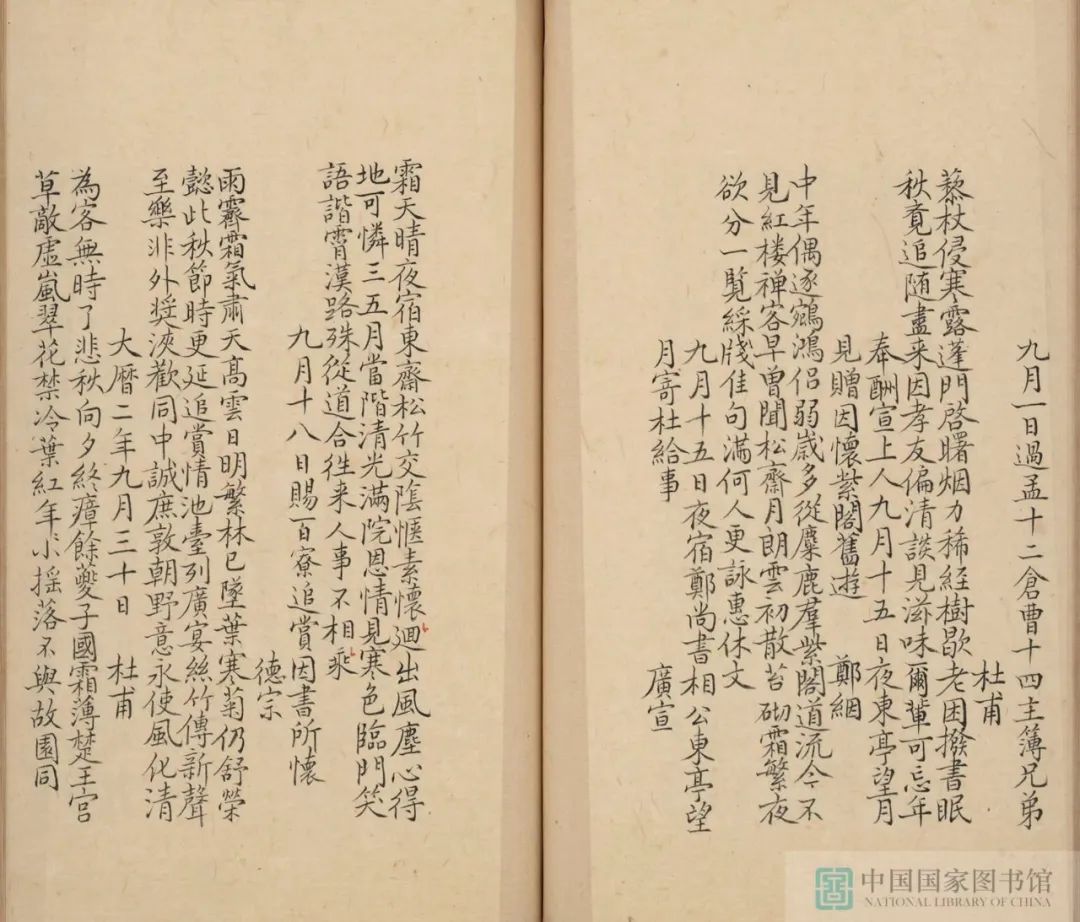 九月一日過孟十二倉曹十四主簿兄弟
杜甫
藜杖侵寒露蓬門啓曙烟力稀経樹歇老困撥書眠
秋竟追随盡来因孝友偏清談見滋味爾輩可忘年
奉酬宣上人九月十五日夜東亭望月
見贈因懷紫閣舊遊
鄭絪
中年偶逐鵷鴻侣弱歳多從麋鹿羣紫閣道流今不
見紅楼禅客早曾聞松齋月朗雲初散苔砌霜繁夜
欲分一覧綵牋佳句滿何人更詠惠休文
九月十五日夜宿鄭尚書相公東亭望
月寄杜給事
廣宣
霜天晴夜宿東齋松竹交陰愜素懷迥出風塵心得
地可憐三五月當階清光滿院恩情見寒色臨門笑
語諧霄漢路殊從道合往来人事不相乖
九月十八日賜百寮追賞因書所懷
德宗
雨霽霜氣肅天高雲日明繁林已墜葉寒菊仍舒榮
懿此秋節時更延追賞情池臺列廣宴絲竹傳新聲
至樂非外奨浹歡同中誠庶敦朝野意永使風化清
大曆二年九月三十日
杜甫
為客無時了悲秋向夕終瘴餘夔子國霜薄楚王宮
草敵虛嵐翠花禁冷葉紅年小揺落不與故園同
中国国家图书馆
NATIONAL LIBRARY OF CHINA